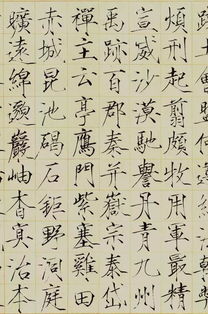 煩刑起翦頗牧用軍最精
宣威沙漠馳譽丹青九州
禹跡百郡秦并嶽宗泰岱
禪主云亭鴈門紫塞雞田
赤城昆池碣石鉅野洞庭
曠遠綿邈巖岫杳冥治本